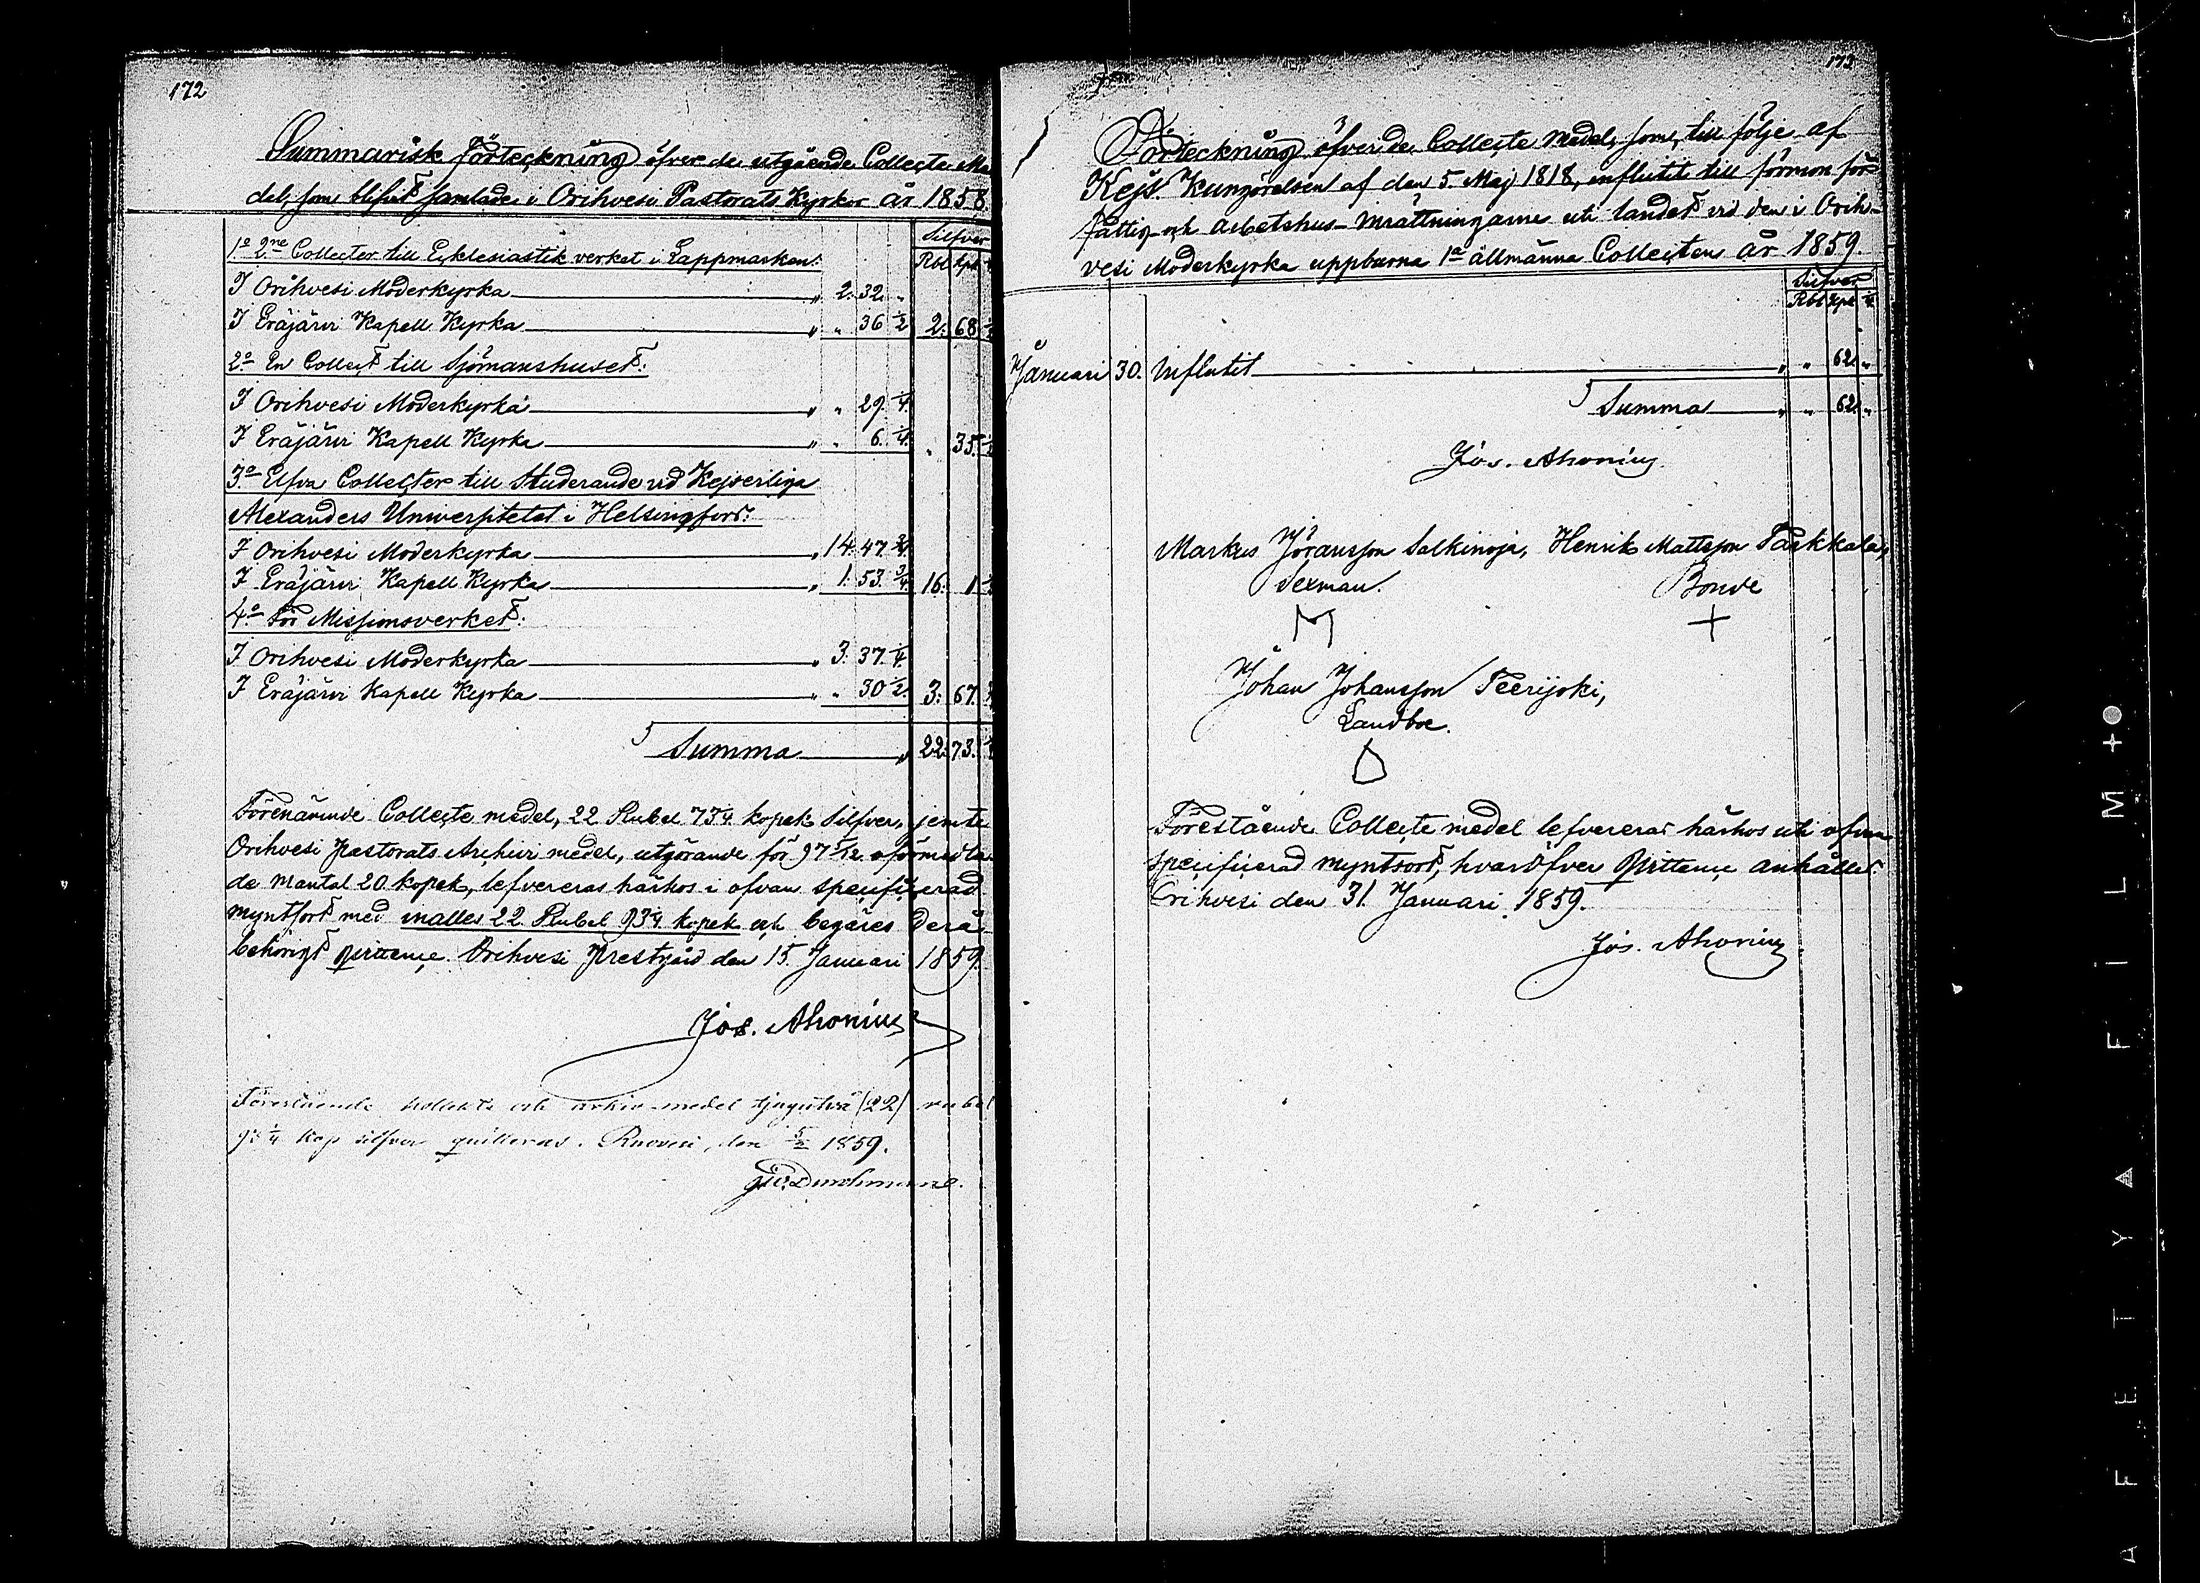 172
Summarisk Förteckning öfver de utgående Collecte Me-
del, som blifvit samlade i Orihvesi Pastorats Kyrkor år 1858.
Silfver
1o 2ne Collecter till Ecklesiastik verket i Lappmarken: Rbl Kpk
I Orihvesi Moderkyrka " 2. 32. "
I Eräjärvi Kapell Kyrka " " 36 1/2 2. 68 1/2
2o En Collect till Sjömanshuset:
I Orihvesi Moderkyrka " " 29 1/4
I Eräjärvi Kapell Kyrka " " 6 1/4 " 35 1/2
3o Elfva Collecter till Studerande vid Kejserliga
Alexanders Universitetet i Helsingfors:
I Orihvesi Moderkyrka " 14. 47 3/4
I Eräjärvi Kapell Kyrka " 1. 53 3/4 16. 1 1/2
4o För Missionsverket:
I Orihvesi Moderkyrka " 3. 37 1/4
I Eräjärvi Kapell Kyrka " " 30 1/2 3. 67 3/4
Summa " 22. 73 1/4
Förenämnde Collecte medel, 22 Rubel 73 1/4 kopek Silfver, jemte
Orihvesi Pastorats Archivi medel, utgörande för 97 5/12 oförmedla-
de Mantal 20 kopek, lefvereras härhos i ofvan specificerad
myntsort med inalles 22 Rubel 93 1/4 kopek och begäres derå
behörigt qvittence. Orihvesi Prestgård den 15. Januari 1859.
Jos. Ahonius
Förestående kollekt och arkiv-medel tjugutvå (22) rubel
93 1/4 kop silfver quitteras. Ruovesi, den 5/2 1859.
Durchman
173
Förteckning öfver de Collecte Medel, som, till följe af
Kejs. Kungörelsen af den 5. Maj 1818, influtit till förmon för
Fattig- och Arbetshus-Inrättningarne uti landet vid den i Orih-
vesi Moderkyrka uppburna 1a allmänna Collecten år 1859.
Silfver
Rbl Kpk 1/4
Januari 30. Influtit " " 62. "
Summa " " 62. "
Jos. Ahonius
Markus Jöransson Salkinoja, Henrik Mattsson Paskkala,
Sexman. Bonde
+
Johan Johansson Teerijoki,
Landbo.
Förestående Collecte medel lefvereras härhos uti ofvan
specificerad myntsort, hvaröfver Qvittence anhålles.
Orihvesi den 31. Januari 1859.
Jos. Ahonius
AFETYA FILM